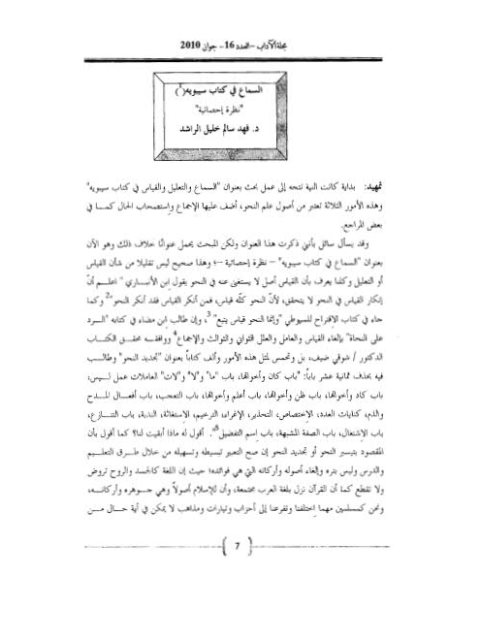 مجلة الآداب – العدد 16- جوان 2010
السماع في كتاب سيبويه(*)
"نظرة إحصائية"
د. فهد سالم خليل الراشد
تمهيد: بداية كانت النية تتجه إلى عمل بحث بعنوان "السماع والتعليل والقياس في كتاب سيبويه"
وهذه الأمور الثلاثة تعتبر من أصول علم النحو، أضف عليها الإجماع واستصحاب الحال كمـا في
بعض المراجع.
وقد يسأل سائل بأنني ذكرت هذا العنوان ولكن المبحث يحمل عنوانًا خلاف ذلك وهو الآن
بعنوان "السماع في كتاب سيبويه" – نظرة إحصائية – وهذا صحيح ليس تقليلا من شأن القياس
أو التعليل وكلنا يعرف بأن القياس أصل لا يستغنى عنه في النحو يقول ابن الأنبـاري " اعلـم أنّ
إنكار القياس في النحو لا يتحقق، لأنّ النحو كلّه قياس، فمن أنكر القياس فقد أنكر النحو"2 وكما
جاء في كتاب الاقتراح للسيوطي "وإنما النحو قياس يتبع" 3، وإن طالب ابن مضاء في كتابه "الـرد
على النحاة" بإلغاء القياس والعامل والعلل الثواني والثوالث والإجماع4 ووافقـه محقـق الكتـاب
الدكتور / شوقي ضيف، بل وتحمس لمثل هذه الأمور وألف كتاباً بعنوان "تجديد النحو" وطالـب
فيه بحذف ثمانية عشر باباً: "باب كان وأخواتها، باب "ما" و"لا" و"لات" العاملات عمل لـيس،
باب كاد وأخواتها، باب ظن وأخواتها، باب أعلم وأخواتها، باب التعجب، باب أفعـال المـدح
والذم، كنايات العدد، الاختصاص، التحذير، الإغراء، الترخيم، الاستغاثة، الندبة، باب التنـازع،
باب الاشتغال، باب الصفة المشبهة، باب اسم التفضيل"5. أقول له ماذا أبقيت لنا؟ كما أقول بأن
المقصود بتيسير النحو أو تجديد النحو إن صح التعبير تبسيطه وتسهيله من خلال طـرق التعلـيم
والدرس وليس بتره وإلغاء أصوله وأركانه التي هي فوائده؛ حيث إن اللغة كالجسد والروح تروض
ولا تقطع كما أن القرآن نزل بلغة العرب مجتمعة، وأن للإسلام أصولاً وهي جـوهره وأركانـه،
ونحن كمسلمين مهما اختلفنا وتفرعنا إلى أحزاب وتيارات ومذاهب لا يمكن في أية حـال مـن
7